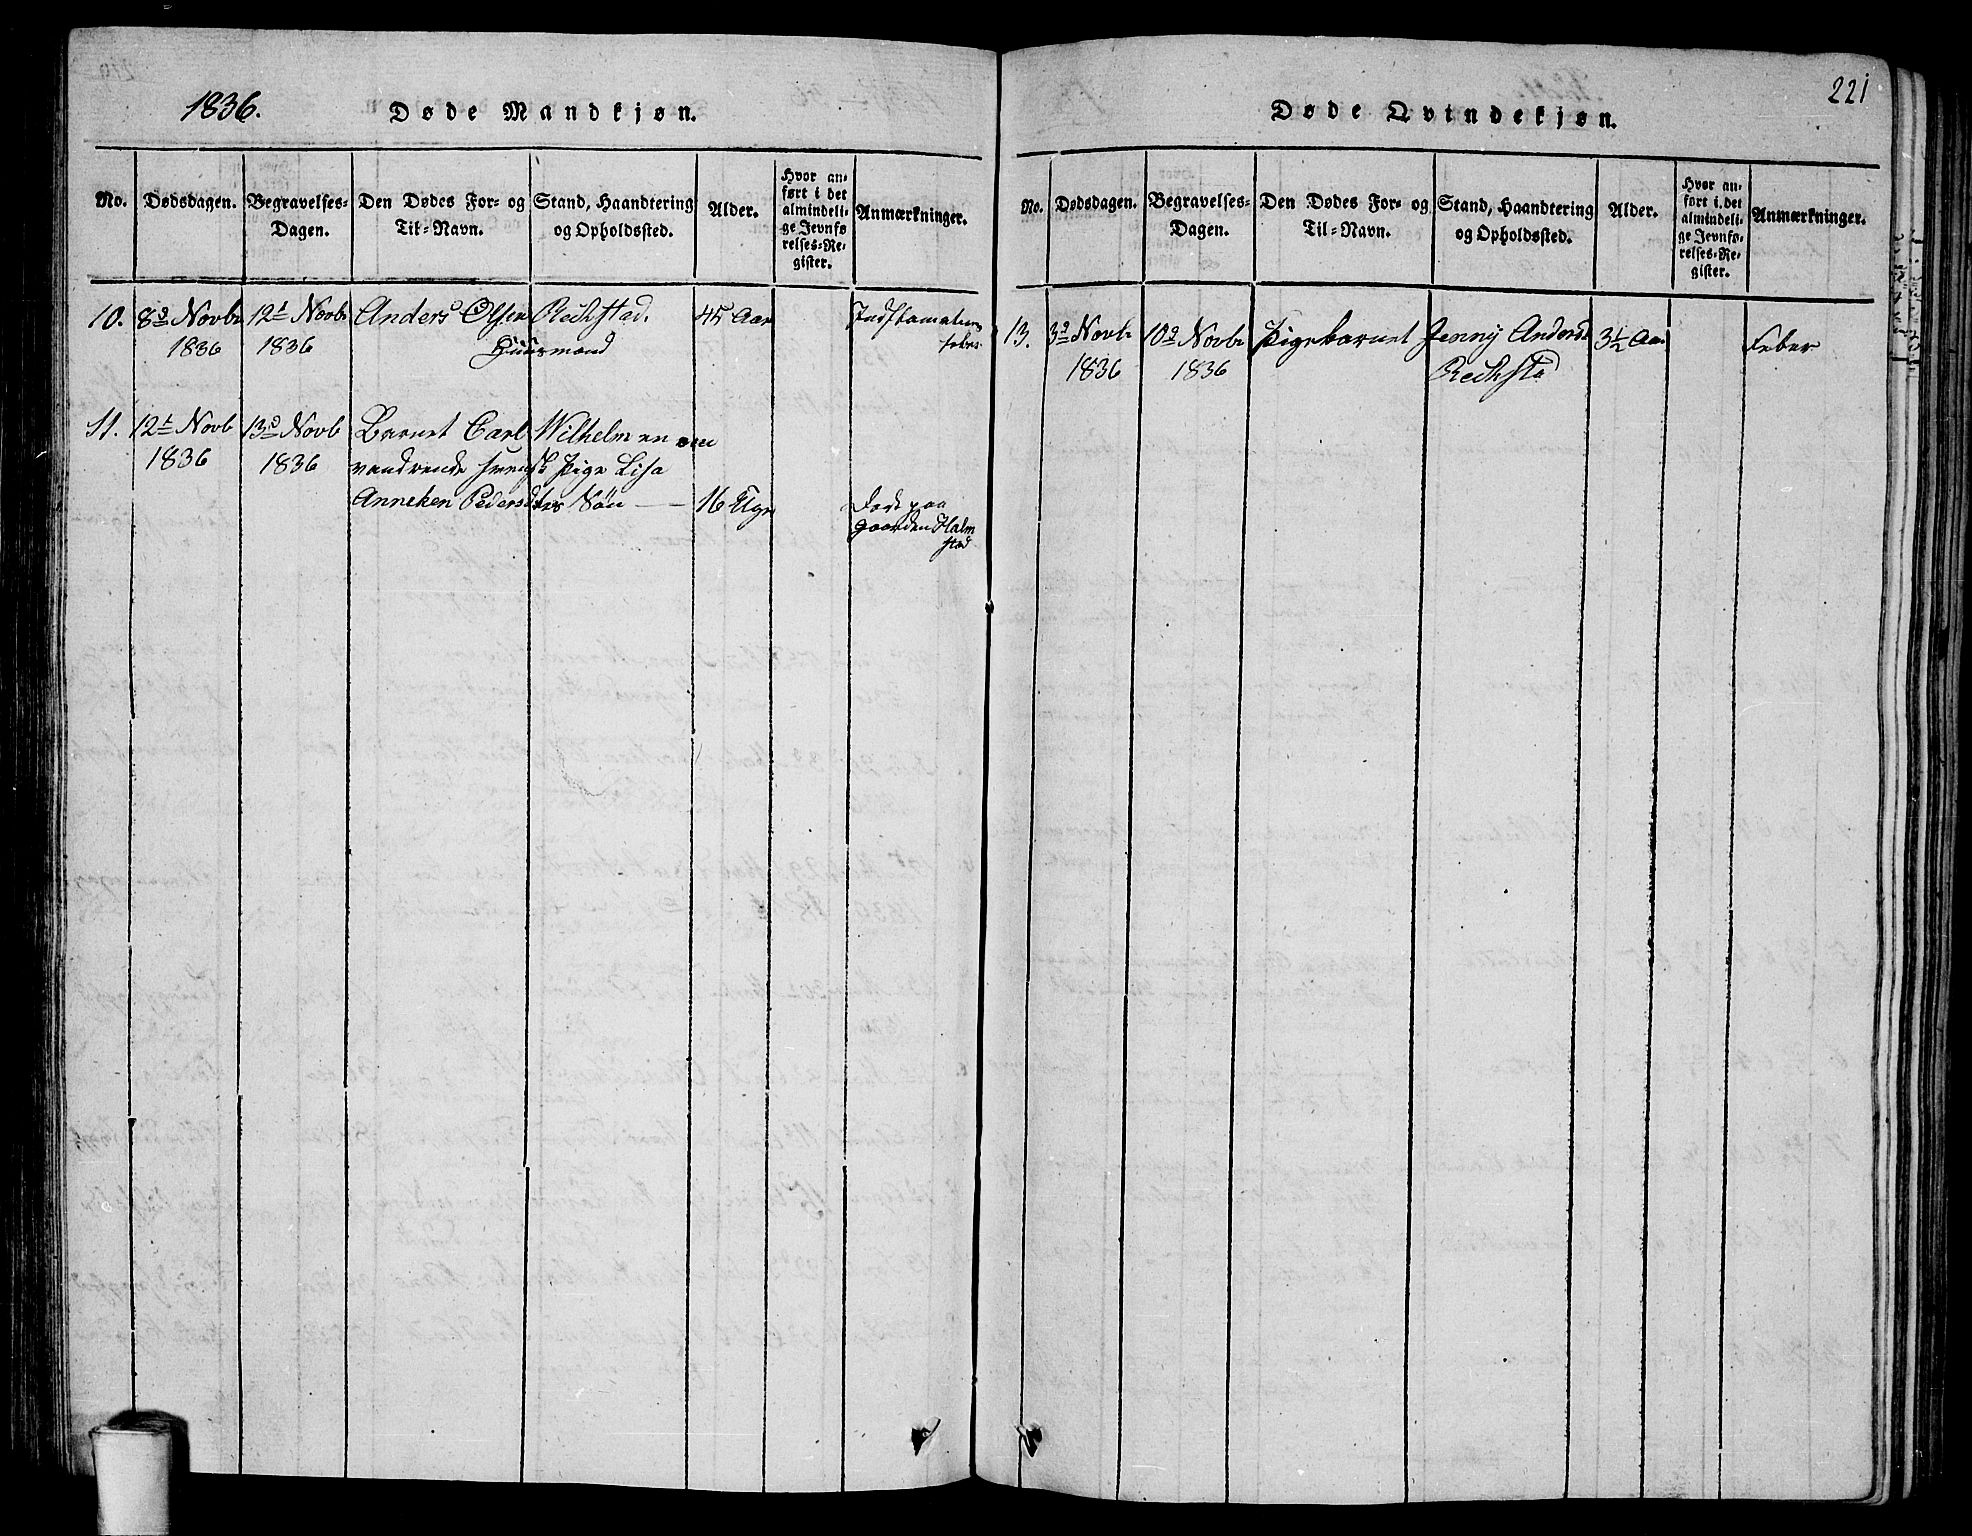 1836.
Døde Mandkjøn.
No. Dødsdagen. Begravelses-Dagen. Den Dødes For- og Til-Navn. Stand, Haandtering og Opholdssted. Alder. Hvor anført i det almindelige Jevnførelses-Register. Anmærkninger.
10. 8de Novbr 12te Novbr Anders Olsen Reckstad. 45 Aar
1836 1836 Huusmand
11. 12te Novb 13de Novb Barnet Carl Wilhelm en om
1836 1836 vandrende svensk Pige Lisa
Anneken Pedersdtrs Søn — 16 Uger Døde paa
gaarden Halm
stad
221
Døde Qvindekjøn.
No. Dødsdagen. Begravelses-Dagen. Den Dødes For- og Til-Navn. Stand, Haandtering og Opholdssted. Alder. Hvor anført i det almindelige Jevnførelses-Register. Anmærkninger.
13. 3de Novbr 10de Novbr Pigebarnet Jenny Andersd 3½ Aar Feber
1836 1836 Reckstad